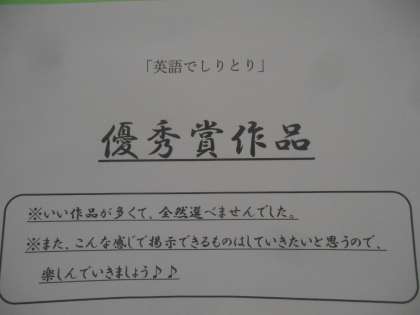 「英語でしりとり」
優秀賞作品
※いい作品が多くて、全然選べませんでした。
※また、こんな感じで掲示できるものはしていきたいと思うので、
楽しんでいきましょう♪♪